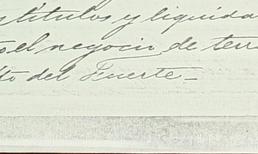 títulos y liquida
el negocio de terr
to del Fuerte_